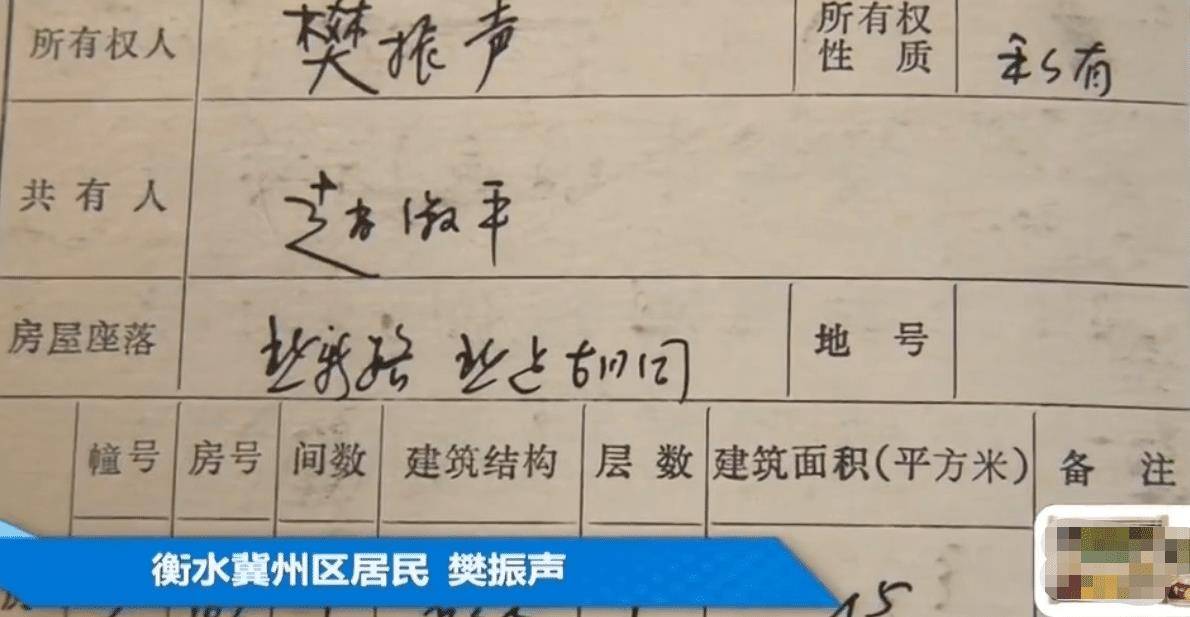 所有权人 樊振声 所有权性质 私有
共有人 赵淑平
房屋座落 路 胡同 地号
幢号 房号 间数 建筑结构 层数 建筑面积(平方米) 备注
衡水冀州区居民 樊振声